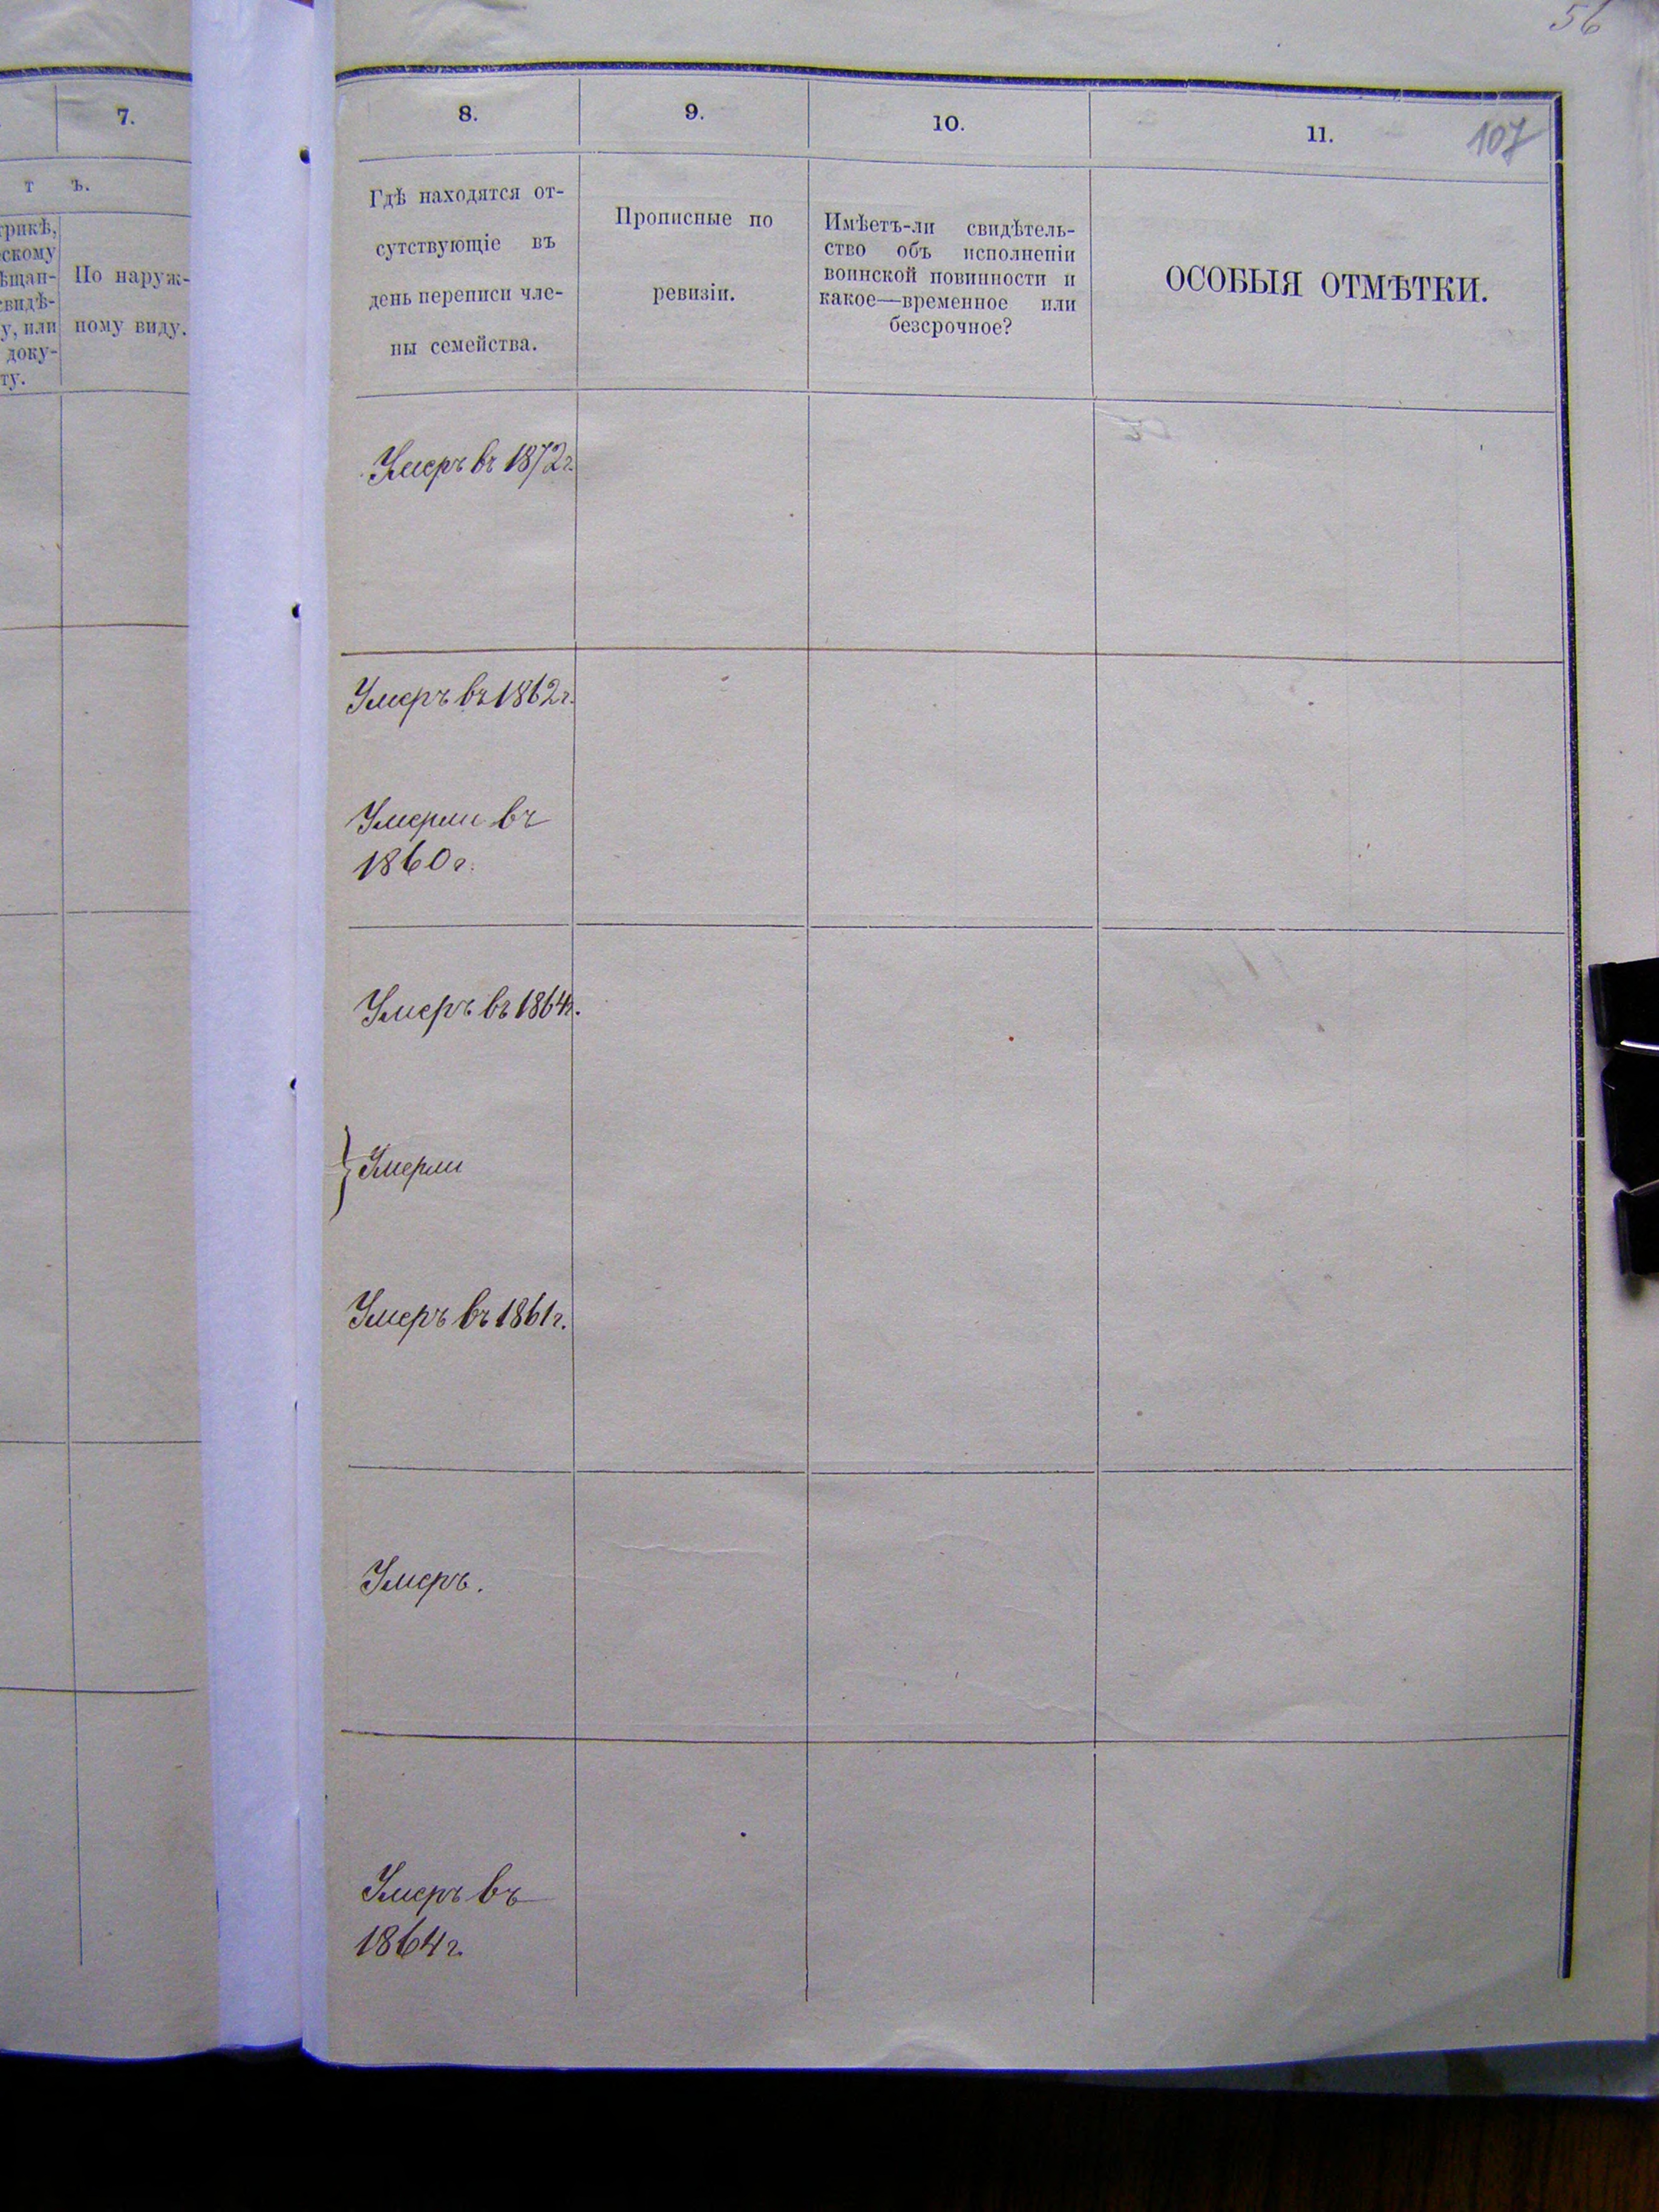 56
7.
8.
9.
10.
11.
107
т ъ.
трикѣ,
скому
ѣщан-
свидѣ-
у, или
доку-
ту.
По наруж-
ному виду.
Гдѣ находятся от-
сутствующіе въ
день переписи чле-
ны семейства.
Прописные по
ревизіи.
Имѣетъ-ли свидѣтель-
ство объ исполненіи
воинской повинности и
какое—временное или
безсрочное?
ОСОБЫЯ ОТМѢТКИ.
Умеръ въ 1872 г.
Умеръ въ 1862 г.
Умерли въ
1860 г.
Умеръ въ 1864 г.
} Умерли
Умеръ въ 1861 г.
Умеръ.
Умеръ въ
1864 г.